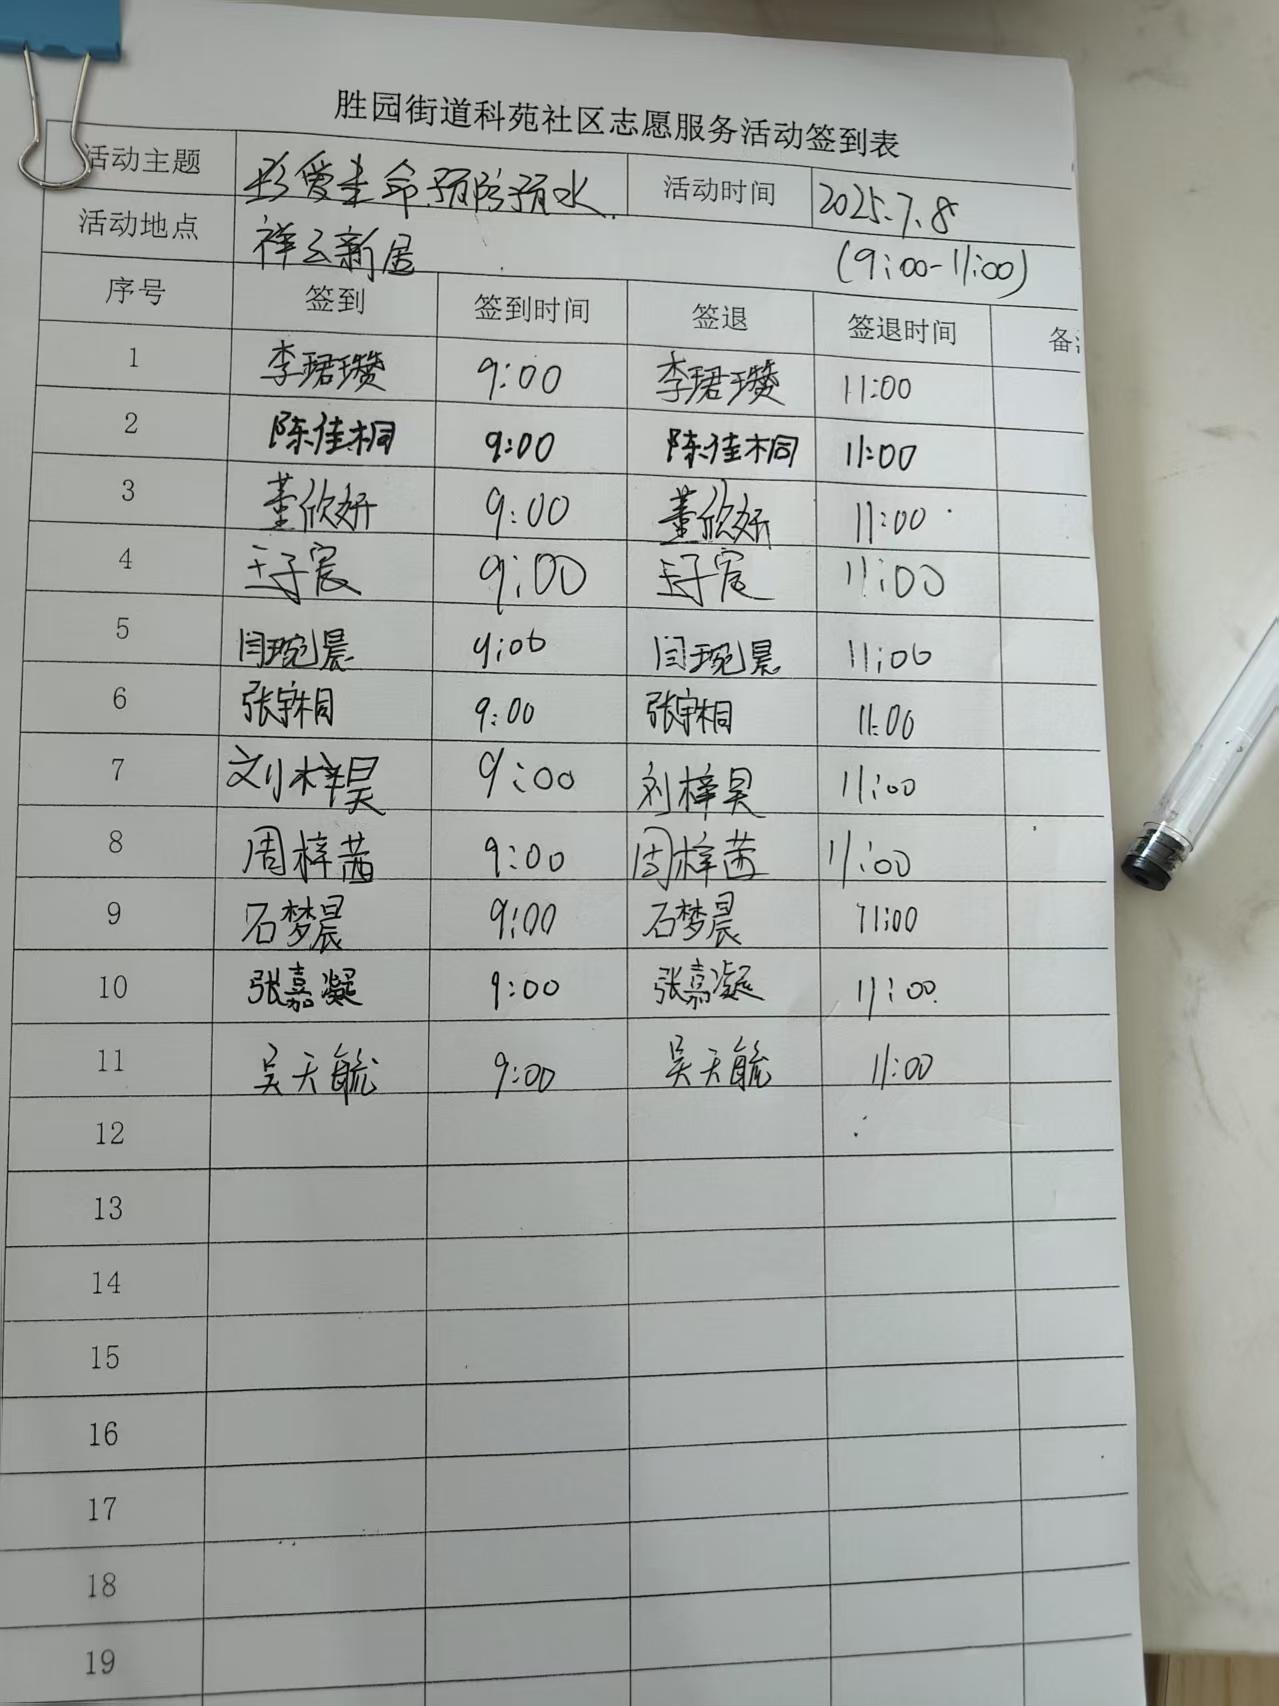 胜园街道科苑社区志愿服务活动签到表
活动主题 珍爱生命.预防溺水. 活动时间 2025.7.8
活动地点 祥云新居 (9:00-11:00)
序号 签到 签到时间 签退 签退时间 备
1 李珺瓒 9:00 李珺瓒 11:00
2 陈佳桐 9:00 陈佳桐 11:00
3 董欣妍 9:00 董欣妍 11:00
4 王子宸 9:00 王子宸 11:00
5 闫琬晨 9:00 闫琬晨 11:00
6 张宇桐 9:00 张宇桐 11:00
7 刘梓昊 9:00 刘梓昊 11:00
8 周梓茜 9:00 周梓茜 11:00
9 石梦晨 9:00 石梦晨 11:00
10 张嘉凝 9:00 张嘉凝 11:00
11 吴天毓 9:00 吴天毓 11:00
12
13
14
15
16
17
18
19